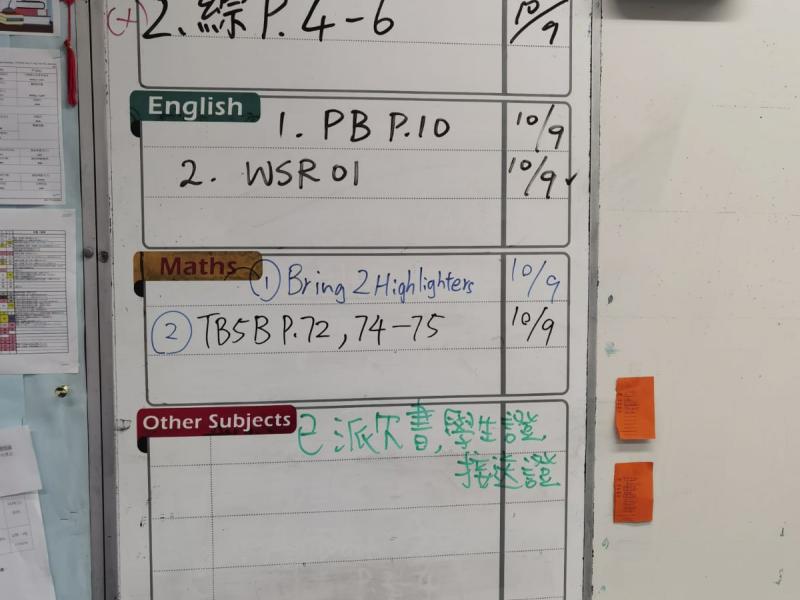 2. 綜 P. 4-6 10/9
English
1. PB P.10 10/9
2. WSR 01 10/9 ✓
Maths
① Bring 2 Highlighters 10/9
② TB5B P.72, 74-75 10/9
Other Subjects
已派欠書,學生證
接送證